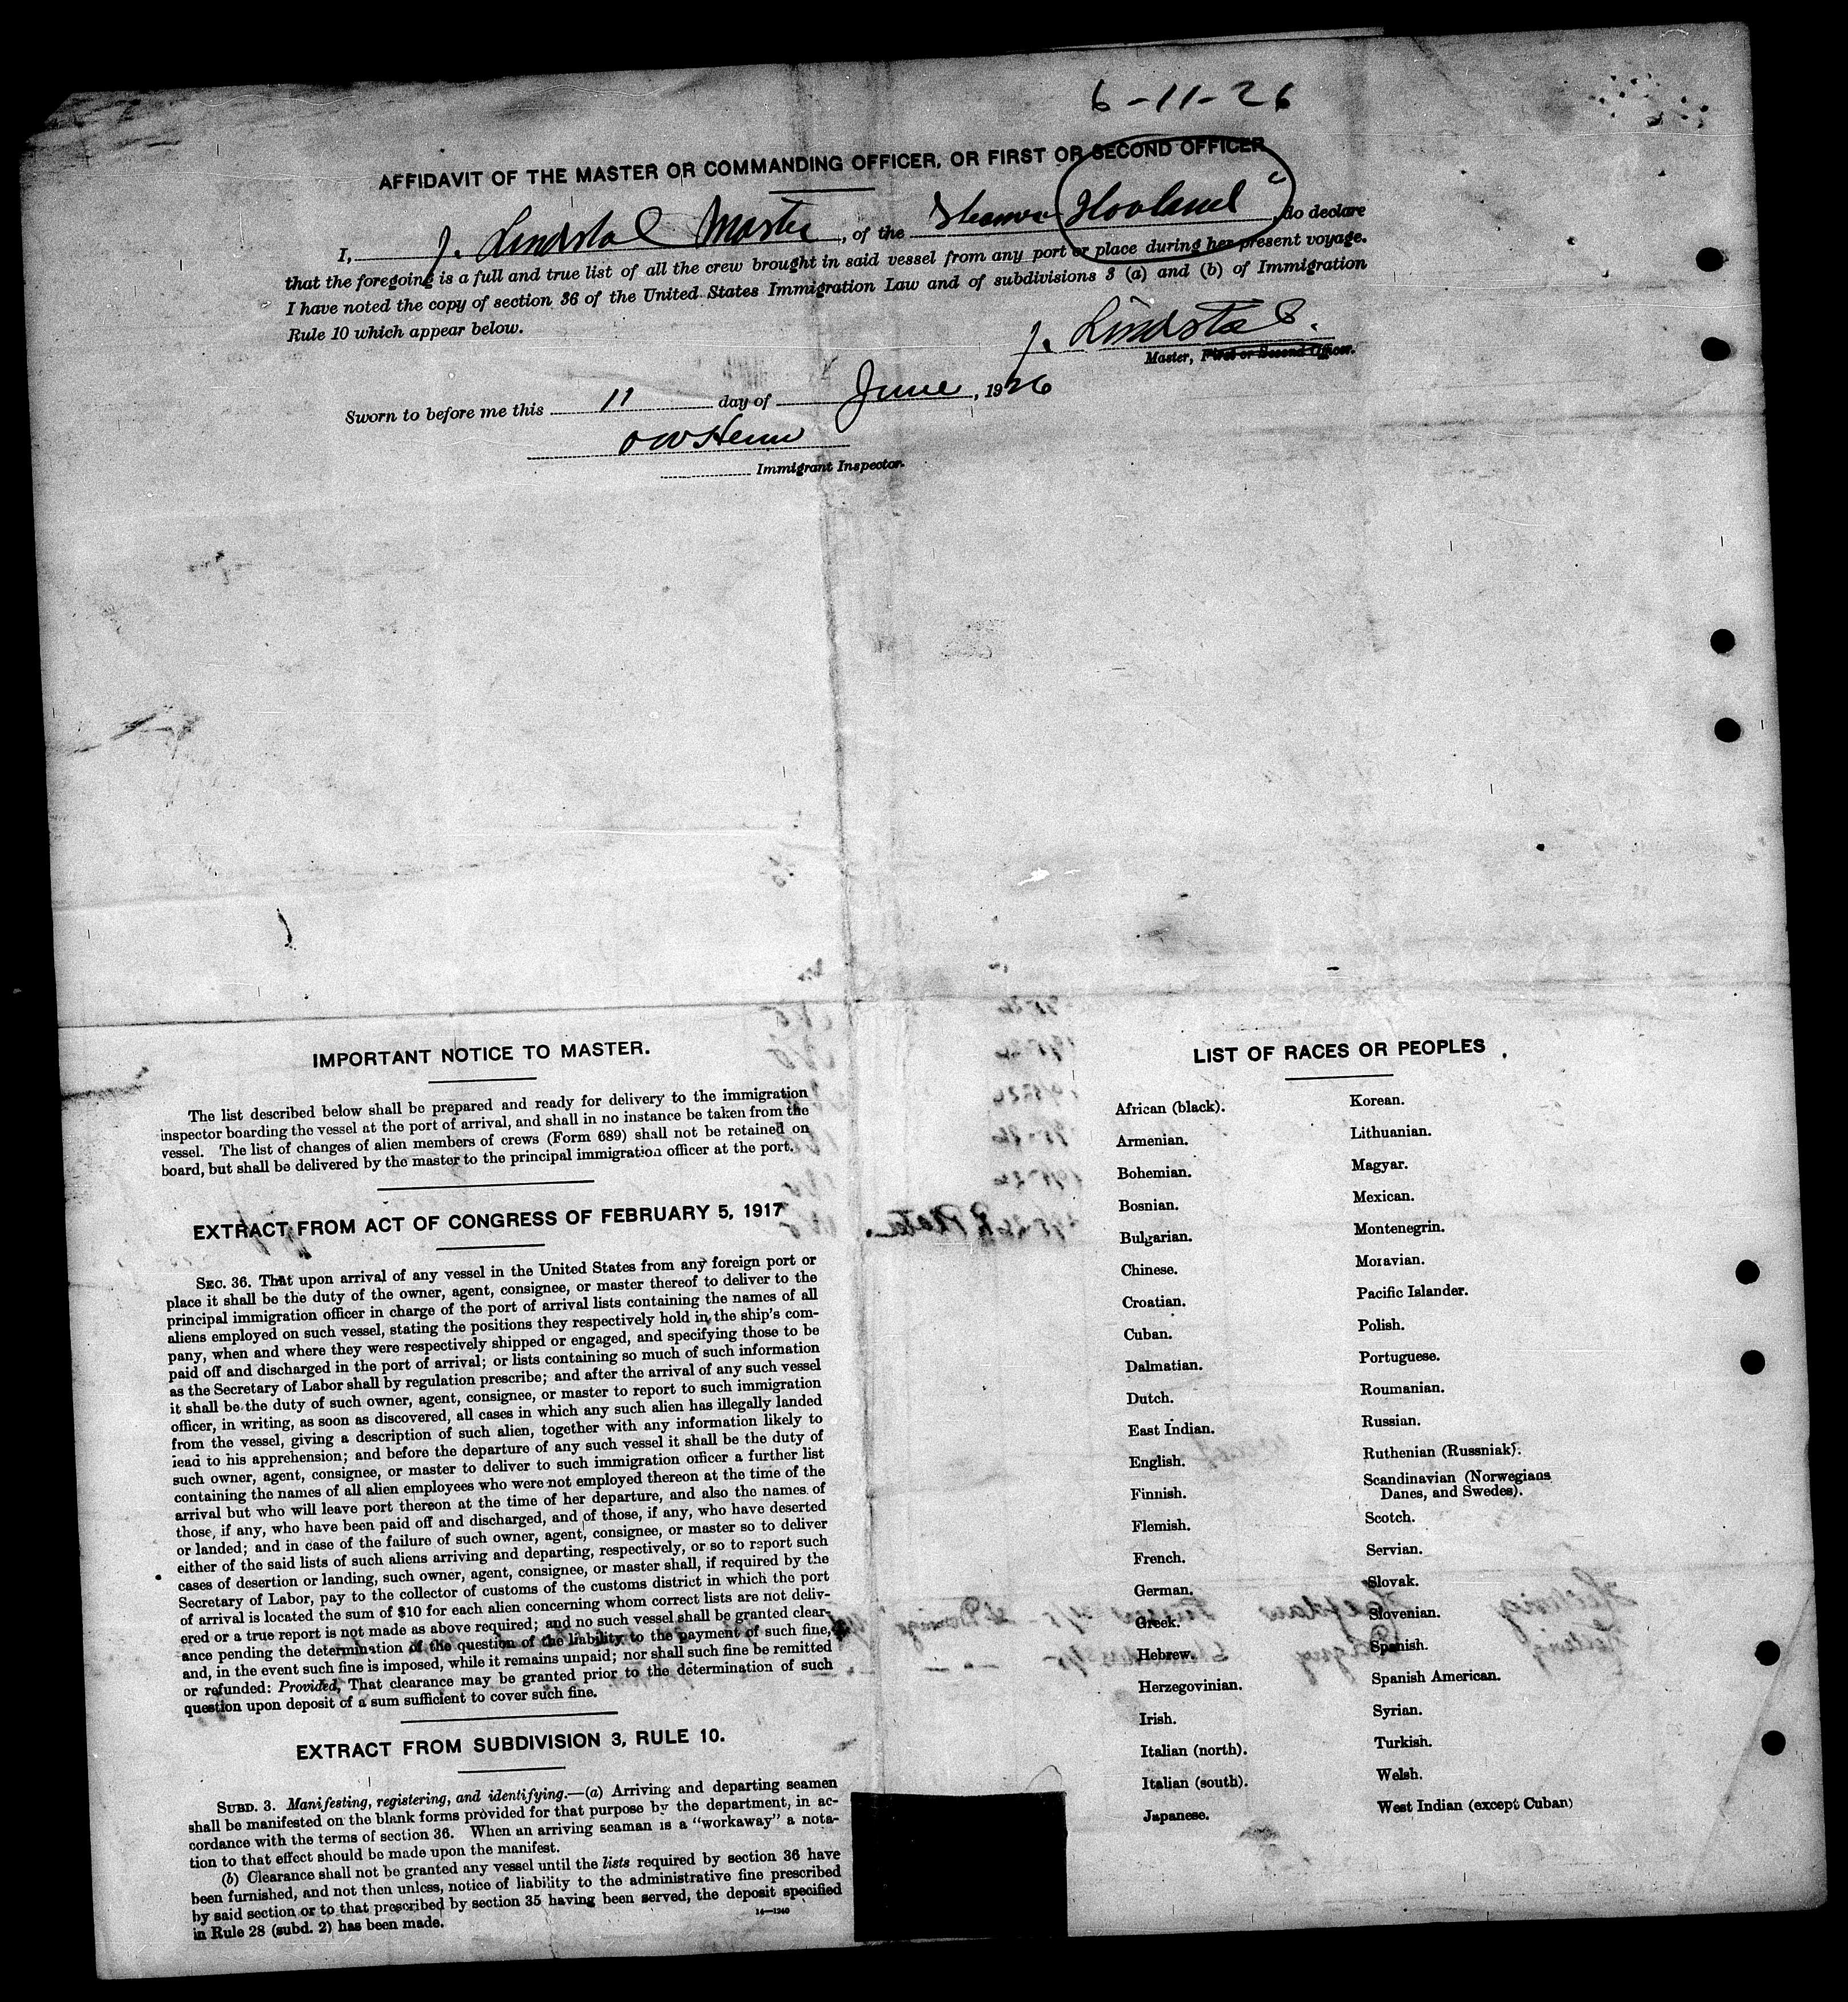 6-11-26
AFFIDAVIT OF THE MASTER OR COMMANDING OFFICER, OR FIRST OR SECOND OFFICER
I, J. Lindstol Master, of the Steamer Hovland, do declare
that the foregoing is a full and true list of all the crew brought in said vessel from any port or place during her present voyage.
I have noted the copy of section 36 of the United States Immigration Law and of subdivisions 3 (a) and (b) of Immigration
Rule 10 which appear below.
J. Lindstol.
Master, First or Second Officer.
Sworn to before me this 11 day of June, 1926
Immigrant Inspector.
IMPORTANT NOTICE TO MASTER.
The list described below shall be prepared and ready for delivery to the immigration
inspector boarding the vessel at the port of arrival, and shall in no instance be taken from the
vessel. The list of changes of alien members of crews (Form 689) shall not be retained on
board, but shall be delivered by the master to the principal immigration officer at the port.
EXTRACT FROM ACT OF CONGRESS OF FEBRUARY 5, 1917
SEC. 36. That upon arrival of any vessel in the United States from any foreign port or
place it shall be the duty of the owner, agent, consignee, or master thereof to deliver to the
principal immigration officer in charge of the port of arrival lists containing the names of all
aliens employed on such vessel, stating the positions they respectively hold in the ship's com-
pany, when and where they were respectively shipped or engaged, and specifying those to be
paid off and discharged in the port of arrival; or lists containing so much of such information
as the Secretary of Labor shall by regulation prescribe; and after the arrival of any such vessel
it shall be the duty of such owner, agent, consignee, or master to report to such immigration
officer, in writing, as soon as discovered, all cases in which any such alien has illegally landed
from the vessel, giving a description of such alien, together with any information likely to
lead to his apprehension; and before the departure of any such vessel it shall be the duty of
such owner, agent, consignee, or master to deliver to such immigration officer a further list
containing the names of all alien employees who were not employed thereon at the time of the
arrival but who will leave port thereon at the time of her departure, and also the names of
those, if any, who have been paid off and discharged, and of those, if any, who have deserted
or landed; and in case of the failure of such owner, agent, consignee, or master so to deliver
either of the said lists of such aliens arriving and departing, respectively, or so to report such
cases of desertion or landing, such owner, agent, consignee, or master shall, if required by the
Secretary of Labor, pay to the collector of customs of the customs district in which the port
of arrival is located the sum of $10 for each alien concerning whom correct lists are not deliv-
ered or a true report is not made as above required; and no such vessel shall be granted clear-
ance pending the determination of the question of the liability to the payment of such fine,
and, in the event such fine is imposed, while it remains unpaid; nor shall such fine be remitted
or refunded: Provided, That clearance may be granted prior to the determination of such
question upon deposit of a sum sufficient to cover such fine.
EXTRACT FROM SUBDIVISION 3, RULE 10.
SUBD. 3. Manifesting, registering, and identifying.—(a) Arriving and departing seamen
shall be manifested on the blank forms provided for that purpose by the department, in ac-
cordance with the terms of section 36. When an arriving seaman is a "workaway" a nota-
tion to that effect should be made upon the manifest.
(b) Clearance shall not be granted any vessel until the lists required by section 36 have
been furnished, and not then unless, notice of liability to the administrative fine prescribed
by said section or to that prescribed by section 35 having been served, the deposit specified
in Rule 28 (subd. 2) has been made.
14—1240
LIST OF RACES OR PEOPLES
African (black).
Armenian.
Bohemian.
Bosnian.
Bulgarian.
Chinese.
Croatian.
Cuban.
Dalmatian.
Dutch.
East Indian.
English.
Finnish.
Flemish.
French.
German.
Greek.
Hebrew.
Herzegovinian.
Irish.
Italian (north).
Italian (south).
Japanese.
Korean.
Lithuanian.
Magyar.
Mexican.
Montenegrin.
Moravian.
Pacific Islander.
Polish.
Portuguese.
Roumanian.
Russian.
Ruthenian (Russniak).
Scandinavian (Norwegians
Danes, and Swedes).
Scotch.
Servian.
Slovak.
Slovenian.
Spanish.
Spanish American.
Syrian.
Turkish.
Welsh.
West Indian (except Cuban)